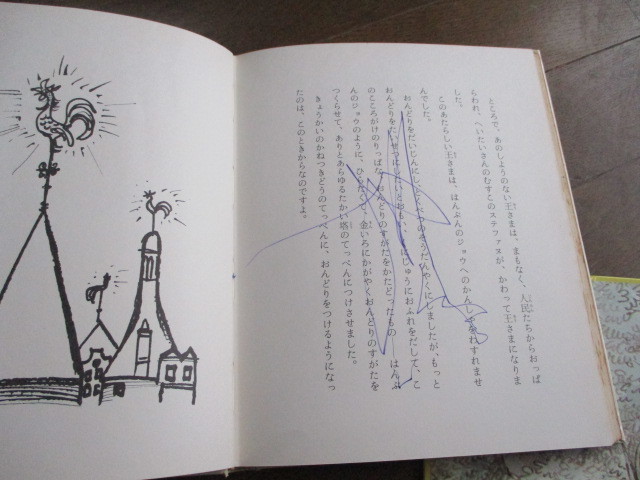 ところで、あのしようのない王さまは、まもなく、人民たちからおっぱ
らわれ、へいたいさんのむすこのステファヌが、かわって王さまになりま
した。
このあたらしい王さまは、はんぶんのジョウへのかんしゃをわすれませ
んでした。
おんどりをだいじんにし、じぶんの そうだんやくにしましたが、もっと
おんどりをたいせつにしたいとおもい、くにじゅうにおふれをだして、こ
のところがけのりっぱな、おんどりのすがたをかたどったもの──はんぶ
んのジョウのように、ひらたくて、金いろにかがやくおんどりのすがたを
つくらせて、ありとあらゆるたかい塔のてっぺんにつけさせました。
きょうかいのかねつきどうのてっぺんに、おんどりをつけるようになっ
たのは、このときからなのですよ。